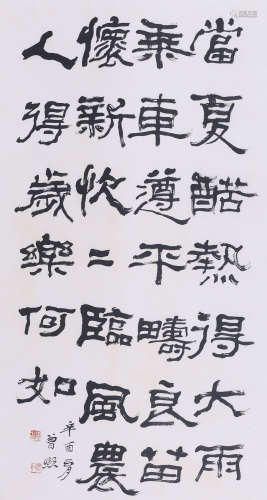 當夏酷熱得大雨
乘車遵平疇良苗
懷新快二臨風農
人得歲樂何如
辛酉夏
曾熙